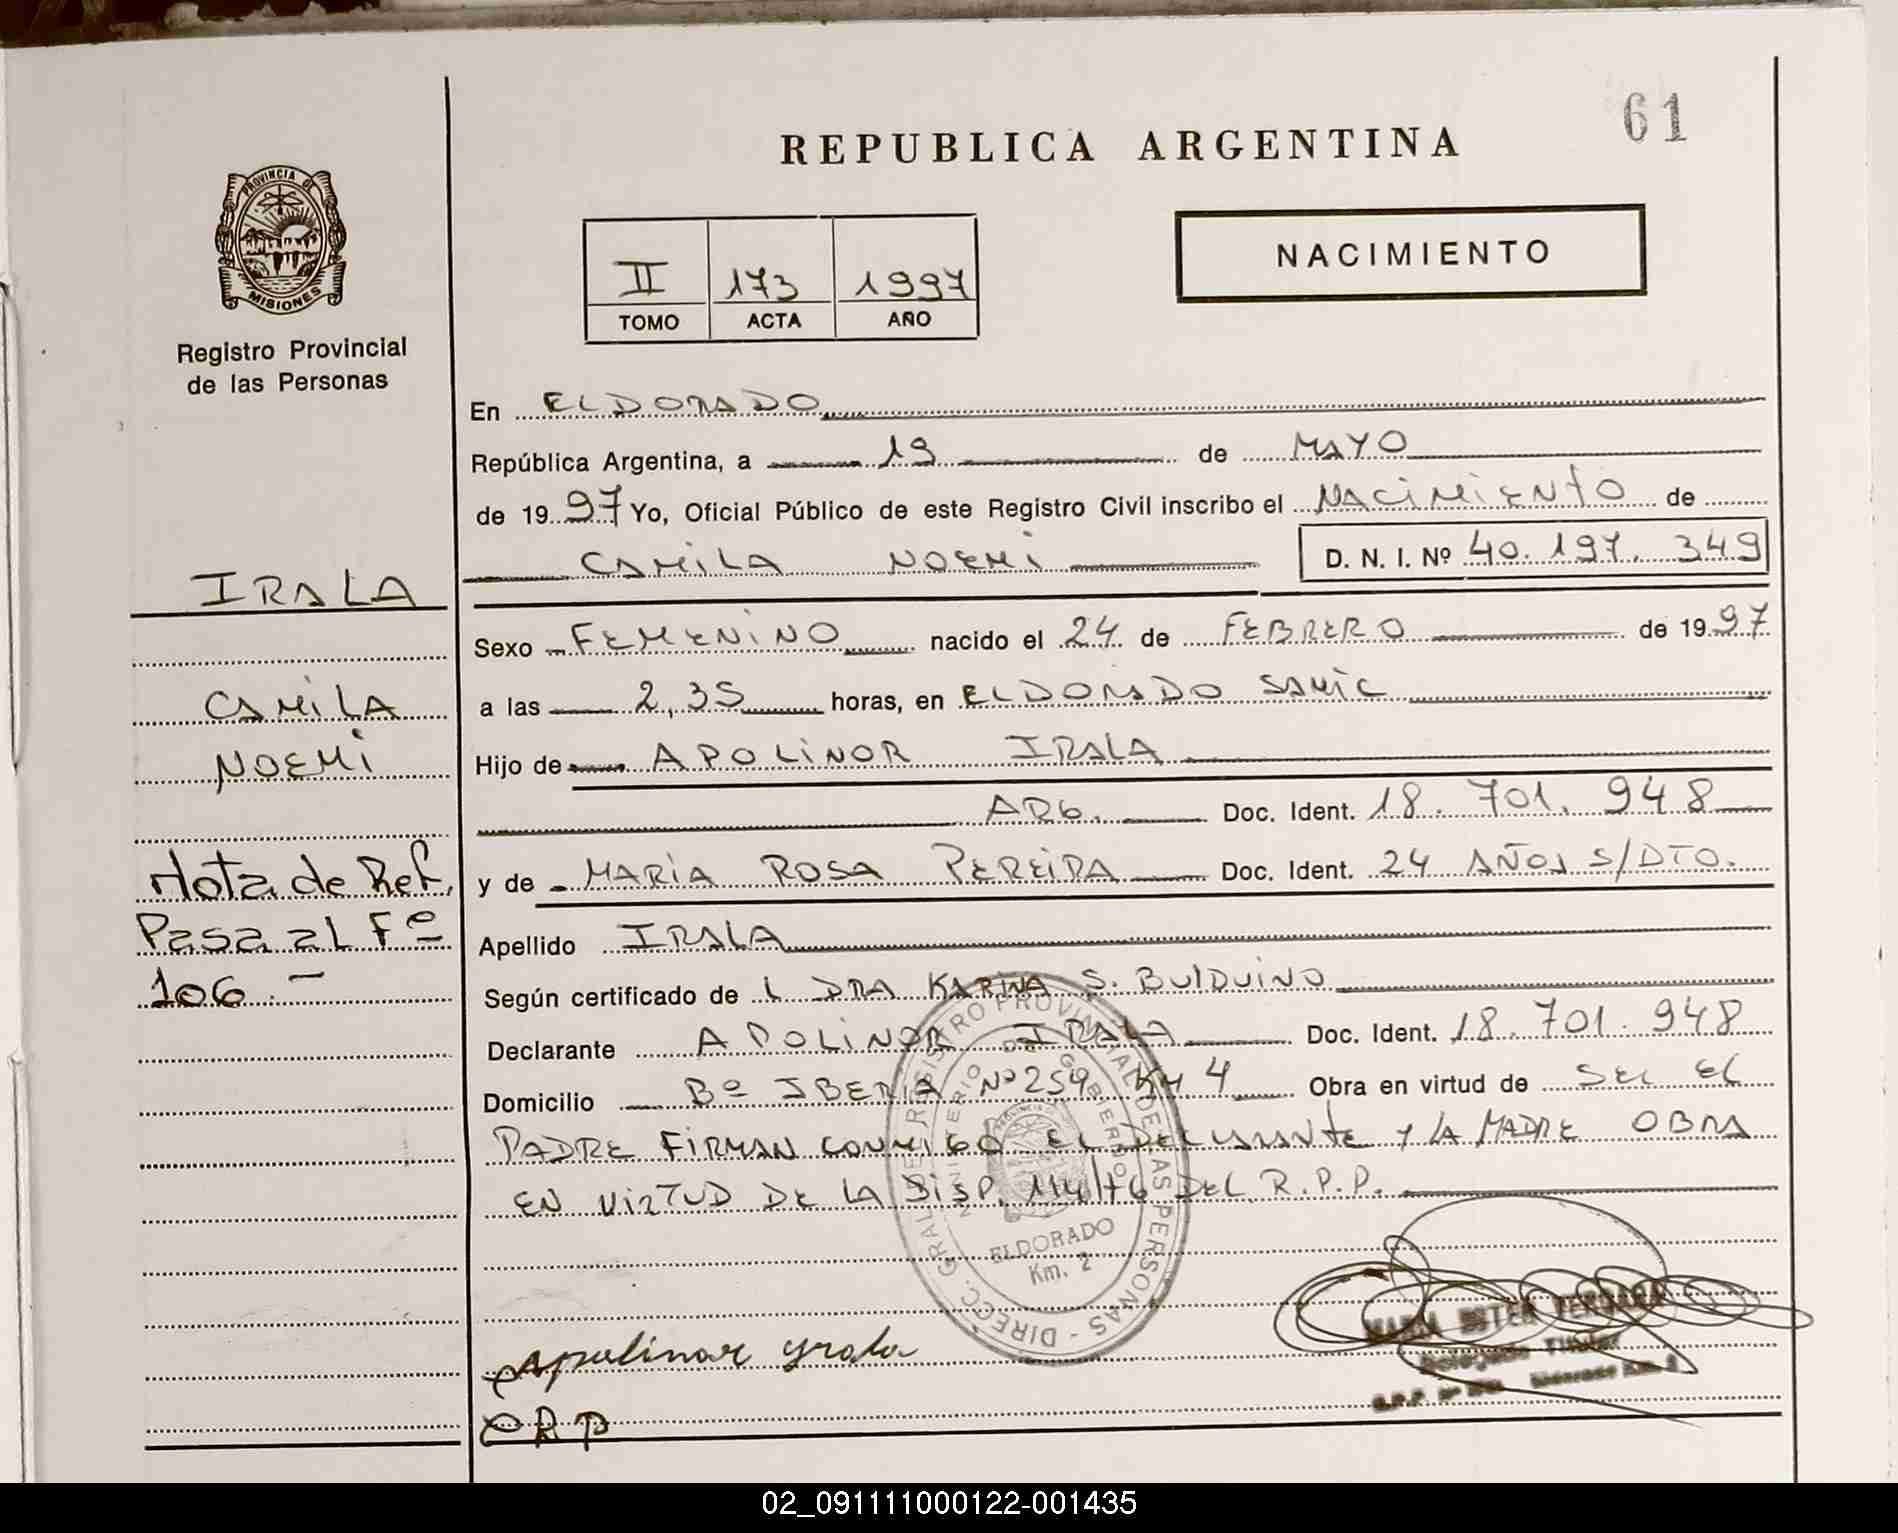 61
REPUBLICA ARGENTINA
PROVINCIA DE
MISIONES
Registro Provincial
de las Personas
II 173 1997
TOMO ACTA AÑO
NACIMIENTO
En ELDORADO
República Argentina, a 19 de MAYO
de 1997 Yo, Oficial Público de este Registro Civil inscribo el NACIMIENTO de
CAMILA NOEMI D. N. I. Nº 40.197.349
IRALA
CAMILA
NOEMI
Nota de Ref.
Pasa al Fº
106.-
Sexo FEMENINO nacido el 24 de FEBRERO de 1997
a las 2,35 horas, en ELDORADO SAMIC
Hijo de APOLINOR IRALA
ARG. Doc. Ident. 18.701.948
y de MARIA ROSA PEREIRA Doc. Ident. 24 AÑOS S/DTO.
Apellido IRALA
Según certificado de L DRA KARINA S.
Declarante APOLINOR IRALA Doc. Ident. 18.701.948
Domicilio Bº IBERIA Nº 259 KM 4 Obra en virtud de SER EL
PADRE FIRMAN CONMIGO EL DECLARANTE Y LA MADRE OBRA
EN VIRTUD DE LA DISP. 114/76 DEL R.P.P.
DIRECC. GRAL. DE REGISTRO PROVINCIAL DE LAS PERSONAS
MINISTERIO DE GOBIERNO
ELDORADO
Km. 2
Apolinar yrala
MARIA ESTER VERGARA
Delegado Titular
C R P
02_091111000122-001435